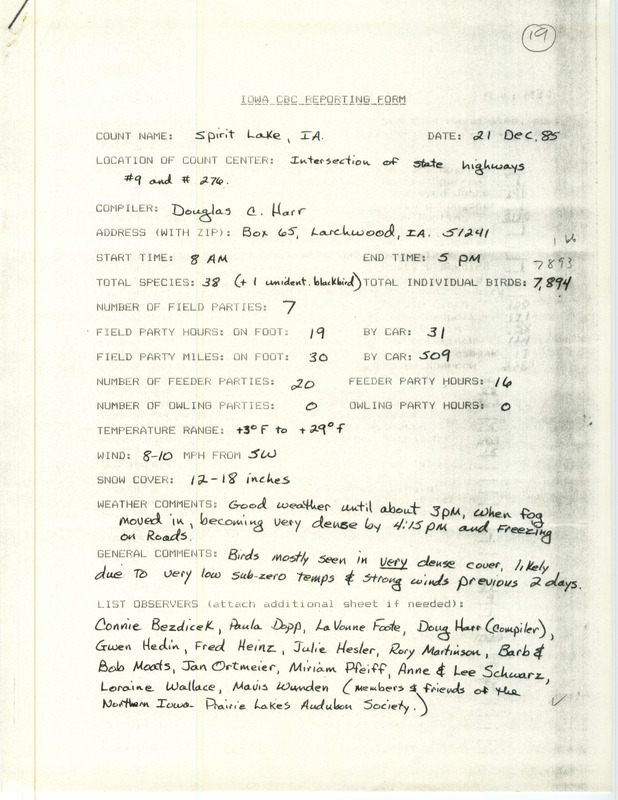 19
IOWA CBC REPORTING FORM
COUNT NAME: Spirit Lake, IA. DATE: 21 Dec, 85
LOCATION OF COUNT CENTER: Intersection of state highways
#9 and # 276.
COMPILER: Douglas C. Harr
ADDRESS (WITH ZIP): Box 65, Larchwood, IA. 51241
START TIME: 8 AM END TIME: 5 PM 7893
TOTAL SPECIES: 38 (+ 1 unident. blackbird) TOTAL INDIVIDUAL BIRDS: 7,894
NUMBER OF FIELD PARTIES: 7
FIELD PARTY HOURS: ON FOOT: 19 BY CAR: 31
FIELD PARTY MILES: ON FOOT: 30 BY CAR: 509
NUMBER OF FEEDER PARTIES: 20 FEEDER PARTY HOURS: 16
NUMBER OF OWLING PARTIES: 0 OWLING PARTY HOURS: 0
TEMPERATURE RANGE: +3°F to +29°F
WIND: 8-10 MPH FROM SW
SNOW COVER: 12-18 inches
WEATHER COMMENTS: Good weather until about 3PM, when fog
moved in, becoming very dense by 4:15 PM and Freezing
on Roads.
GENERAL COMMENTS: Birds mostly seen in very dense cover, likely
due to very low sub-zero temps & strong winds previous 2 days.
LIST OBSERVERS (attach additional sheet if needed):
Connie Bezdicek, Paula Dopp, LaVonne Foote, Doug Harr (Compiler),
Gwen Hedin, Fred Heinz, Julie Hesler, Rory Martinson, Barb &
Bob Moats, Jan Ortmeier, Miriam Pfeiff, Anne & Lee Schwarz,
Loraine Wallace, Mavis Wunden (members & friends of the
Northern Iowa Prairie Lakes Audubon Society.)